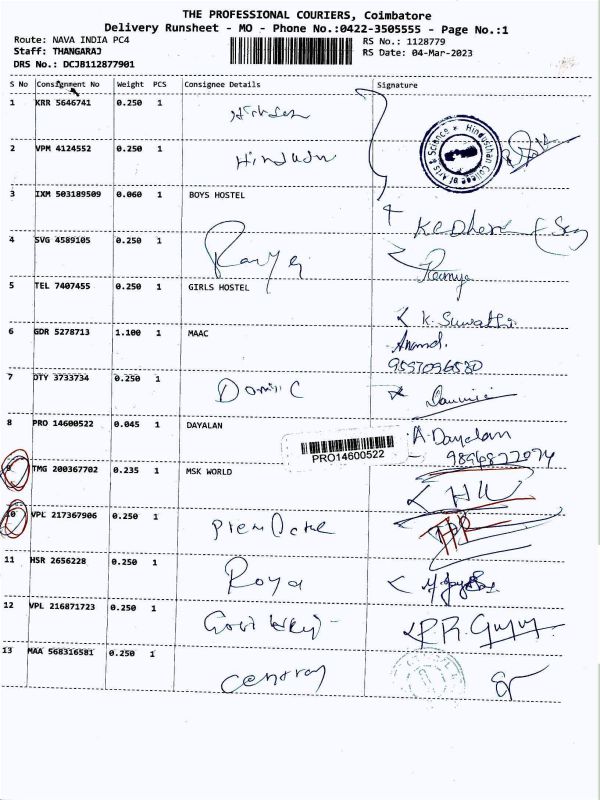 THE PROFESSIONAL COURIERS, Coimbatore
Delivery Runsheet - MO - Phone No.:0422-3505555 - Page No.:1
Route: NAVA INDIA PC4 RS No.: 1128779
Staff: THANGARAJ RS Date: 04-Mar-2023
DRS No.: DCJB112877901
S No Consignment No Weight PCS Consignee Details Signature
1 KRR 5646741 0.250 1
Hindusthan College of Arts & Science
2 VPM 4124552 0.250 1
3 IXM 503189509 0.060 1 BOYS HOSTEL
4 SVG 4589105 0.250 1
Ramya
5 TEL 7407455 0.250 1 GIRLS HOSTEL
K. Suwathi
6 GDR 5278713 1.100 1 MAAC
Anand.
9597096580
7 DTY 3733734 0.250 1
Domi C
8 PRO 14600522 0.045 1 DAYALAN A. Dayalan
PRO14600522
9 TMG 200367702 0.235 1 MSK WORLD
10 VPL 217367906 0.250 1
11 HSR 2656228 0.250 1 Roya
12 VPL 216871723 0.250 1
13 MAA 568316581 0.250 1